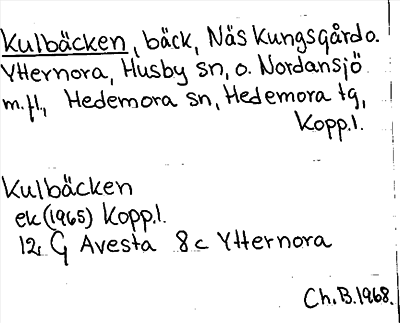 Kulbäcken, bäck, Näs Kungsgård o.
Ytternora, Husby sn, o. Nordansjö
m.fl., Hedemora sn, Hedemora tg,
Kopp.l.
Kulbäcken
ek (1965) Kopp.l.
12 G Avesta 8 c Ytternora
Ch.B.1968.